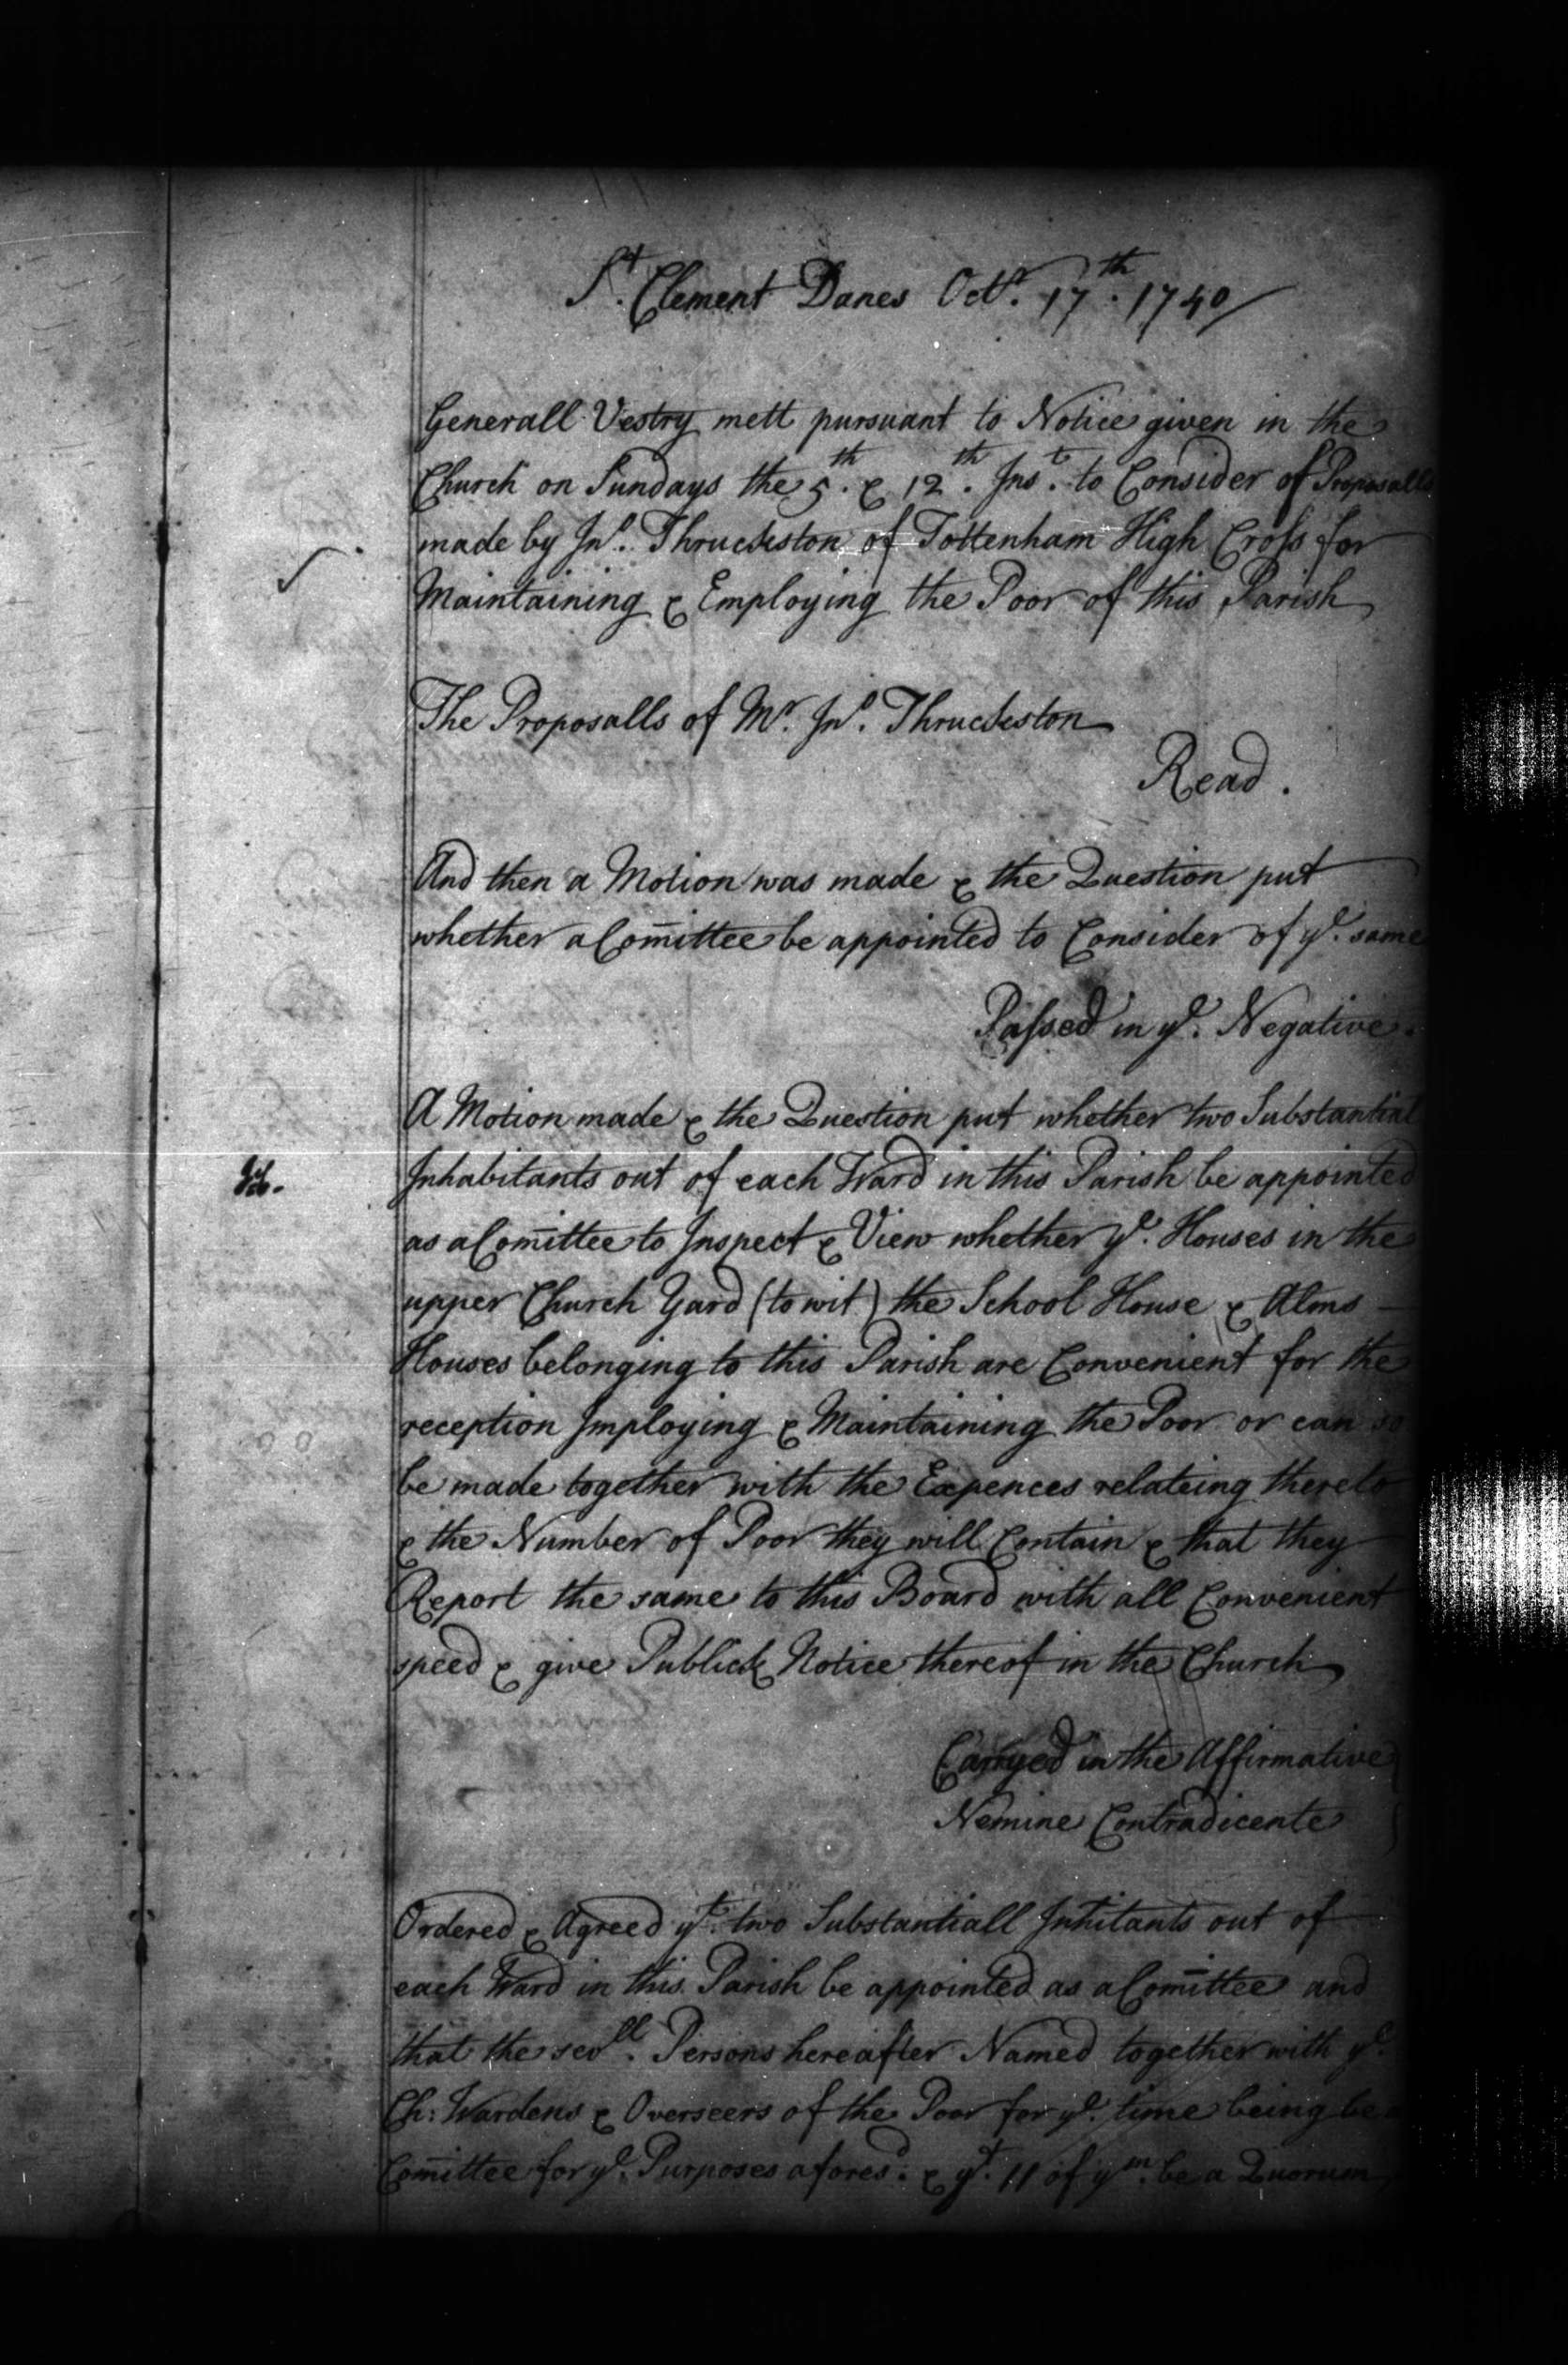 St. Clement Danes Octr. 17th. 1740
Generall Vestry mett pursuant to Notice given in the
Church on Sundays the 5th. & 12th. Inst. to Consider of Proposalls
made by Jno. Thruckston of Tottenham High Cross for
Maintaining & Employing the Poor of this Parish
The Proposalls of Mr. Jno. Thruckston
Read.
And then a Motion was made & the Question put
whether a Com̄ittee be appointed to Consider of ye. same
Passed in ye. Negative.
A Motion made & the Question put whether two Substantial
Inhabitants out of each Ward in this Parish be appointed
as a Com̄ittee to Inspect & View whether ye. Houses in the
upper Church Yard (to wit) the School House & Alms
Houses belonging to this Parish are Convenient for the
reception Imploying & Maintaining the Poor or can so
be made together with the Expences relateing thereto
& the Number of Poor they will Contain & that they
Report the same to this Board with all Convenient
speed & give Publick Notice thereof in the Church
Carryed in the Affirmative
Nemine Contradicente
Ordered & Agreed yt. two Substantiall Inhitants out of
each Ward in this Parish be appointed as a Com̄ittee and
that the sevll. Persons hereafter Named together with ye.
Ch: Wardens & Overseers of the Poor for ye. time being be a
Com̄ittee for ye. Purposes aforesd. & yt. 11 of ym. be a Quorum